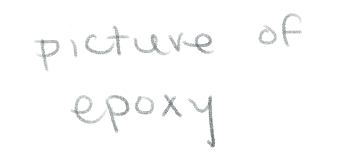 picture of
epoxy